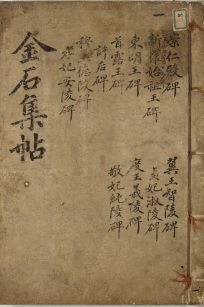 崇仁殿碑
新羅始祖王碑
東明王碑
首露王碑
許后碑
穆王德陵碑
孝妃安陵碑
翼王智陵碑
貞妃淑陵碑
度王義陵碑
敬妃純陵碑
金石集帖